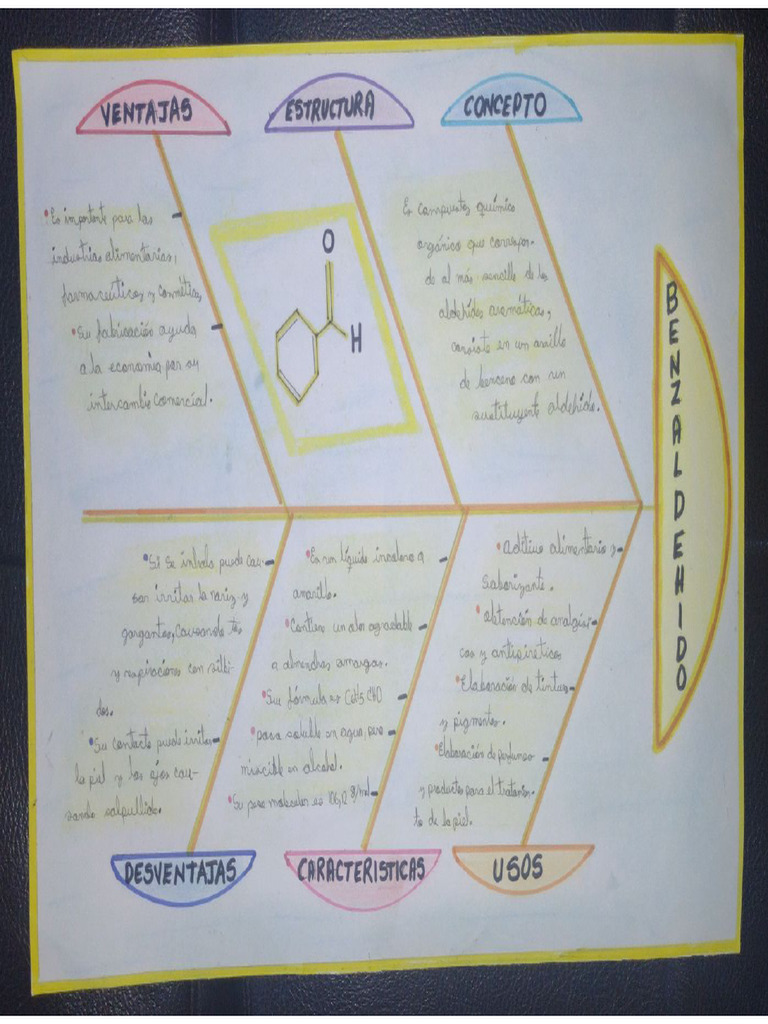 VENTAJAS
• Es importante para las
industrias alimentarias,
farmacéuticas y cosméticas,
• Su fabricación ayuda
a la economía por su
intercambio comercial.
ESTRUCTURA
O
H
CONCEPTO
Es compuestos químico
orgánico que correspon-
de al más sencillo de los
aldehídos aromáticos,
consiste en un anillo
de benceno con un
sustituyente aldehído.
BENZALDEHIDO
• Si se inhala puede cau-
sar irritar la nariz y
gargantas, causando tos
y respiraciones con silbi-
dos.
• Su contacto puede irritar
la piel y los ojos cau-
sando salpullido.
DESVENTAJAS
• Es un líquido incoloro a
amarillo.
• Contiene un olor agradable
a almendras amargas.
• Su fórmula es C6H5 CHO
• poco soluble en agua, pero
miscible en alcohol.
• Su peso molecular es 106,12 g/mol
CARACTERISTICAS
• Aditivo alimentario y
Saborizante.
• obtención de analgési-
cos y antipiréticos
• Elaboración de tinturas
y pigmentos.
• Elaboración de perfumes
y productos para el tratamien-
to de la piel.
USOS